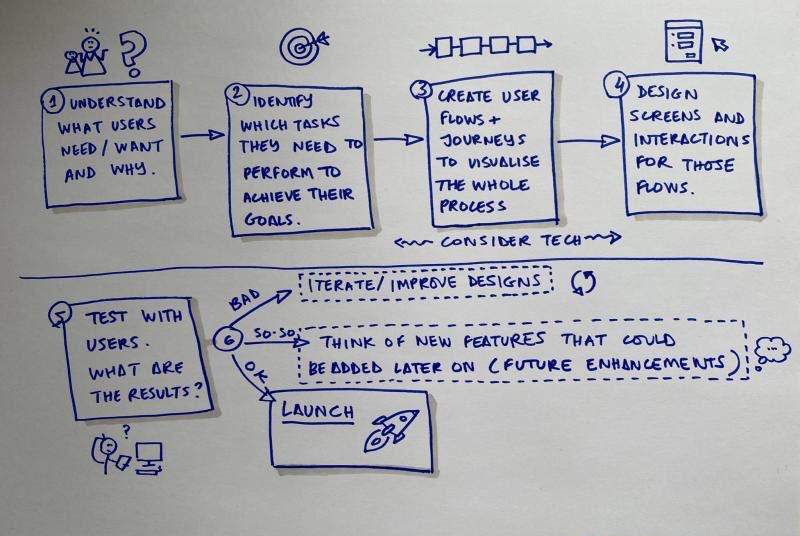 ?
1 UNDERSTAND
WHAT USERS
NEED / WANT
AND WHY.
2 IDENTIFY
WHICH TASKS
THEY NEED TO
PERFORM TO
ACHIEVE THEIR
GOALS.
3 CREATE USER
FLOWS +
JOURNEYS
TO VISUALISE
THE WHOLE
PROCESS
4 DESIGN
SCREENS AND
INTERACTIONS
FOR THOSE
FLOWS.
CONSIDER TECH
5 TEST WITH
USERS.
WHAT ARE
THE RESULTS?
?
6
BAD
ITERATE/IMPROVE DESIGNS
SO-SO
THINK OF NEW FEATURES THAT COULD
BE ADDED LATER ON (FUTURE ENHANCEMENTS)
OK
LAUNCH